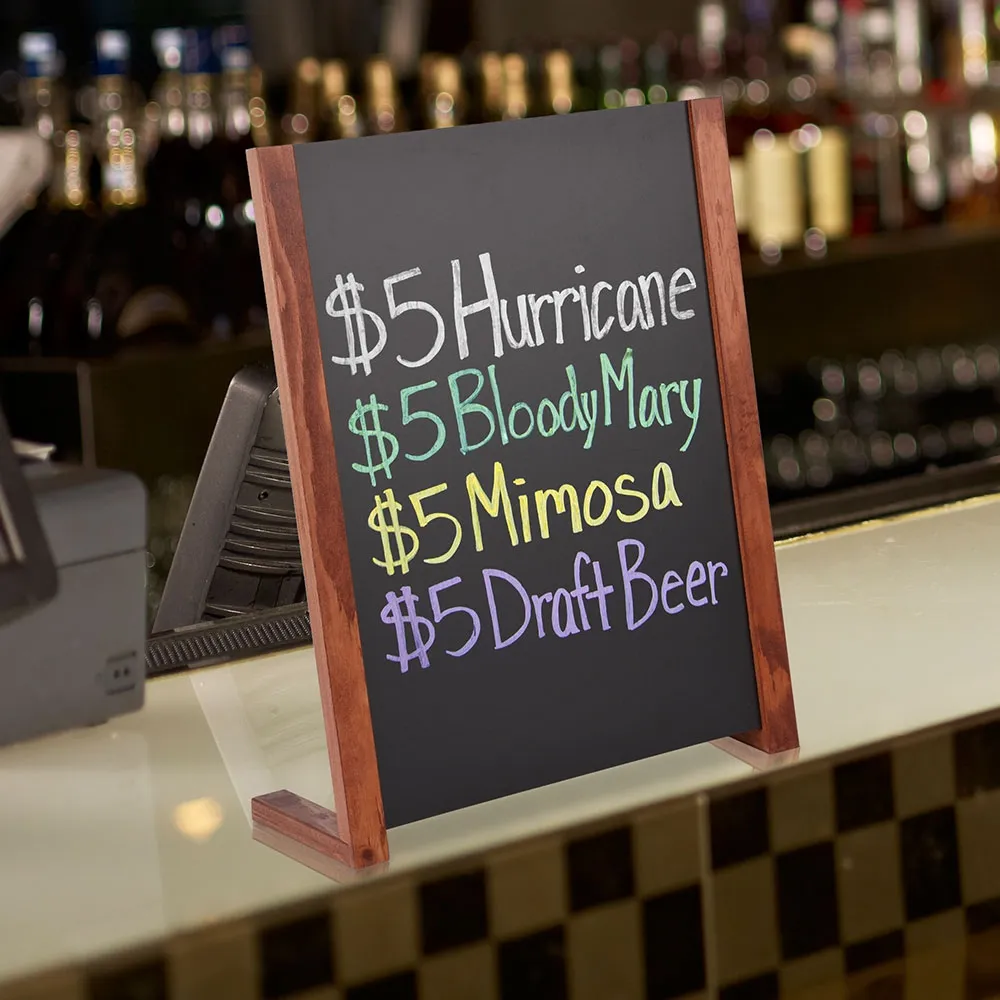 $5 Hurricane
$5 Bloody Mary
$5 Mimosa
$5 Draft Beer